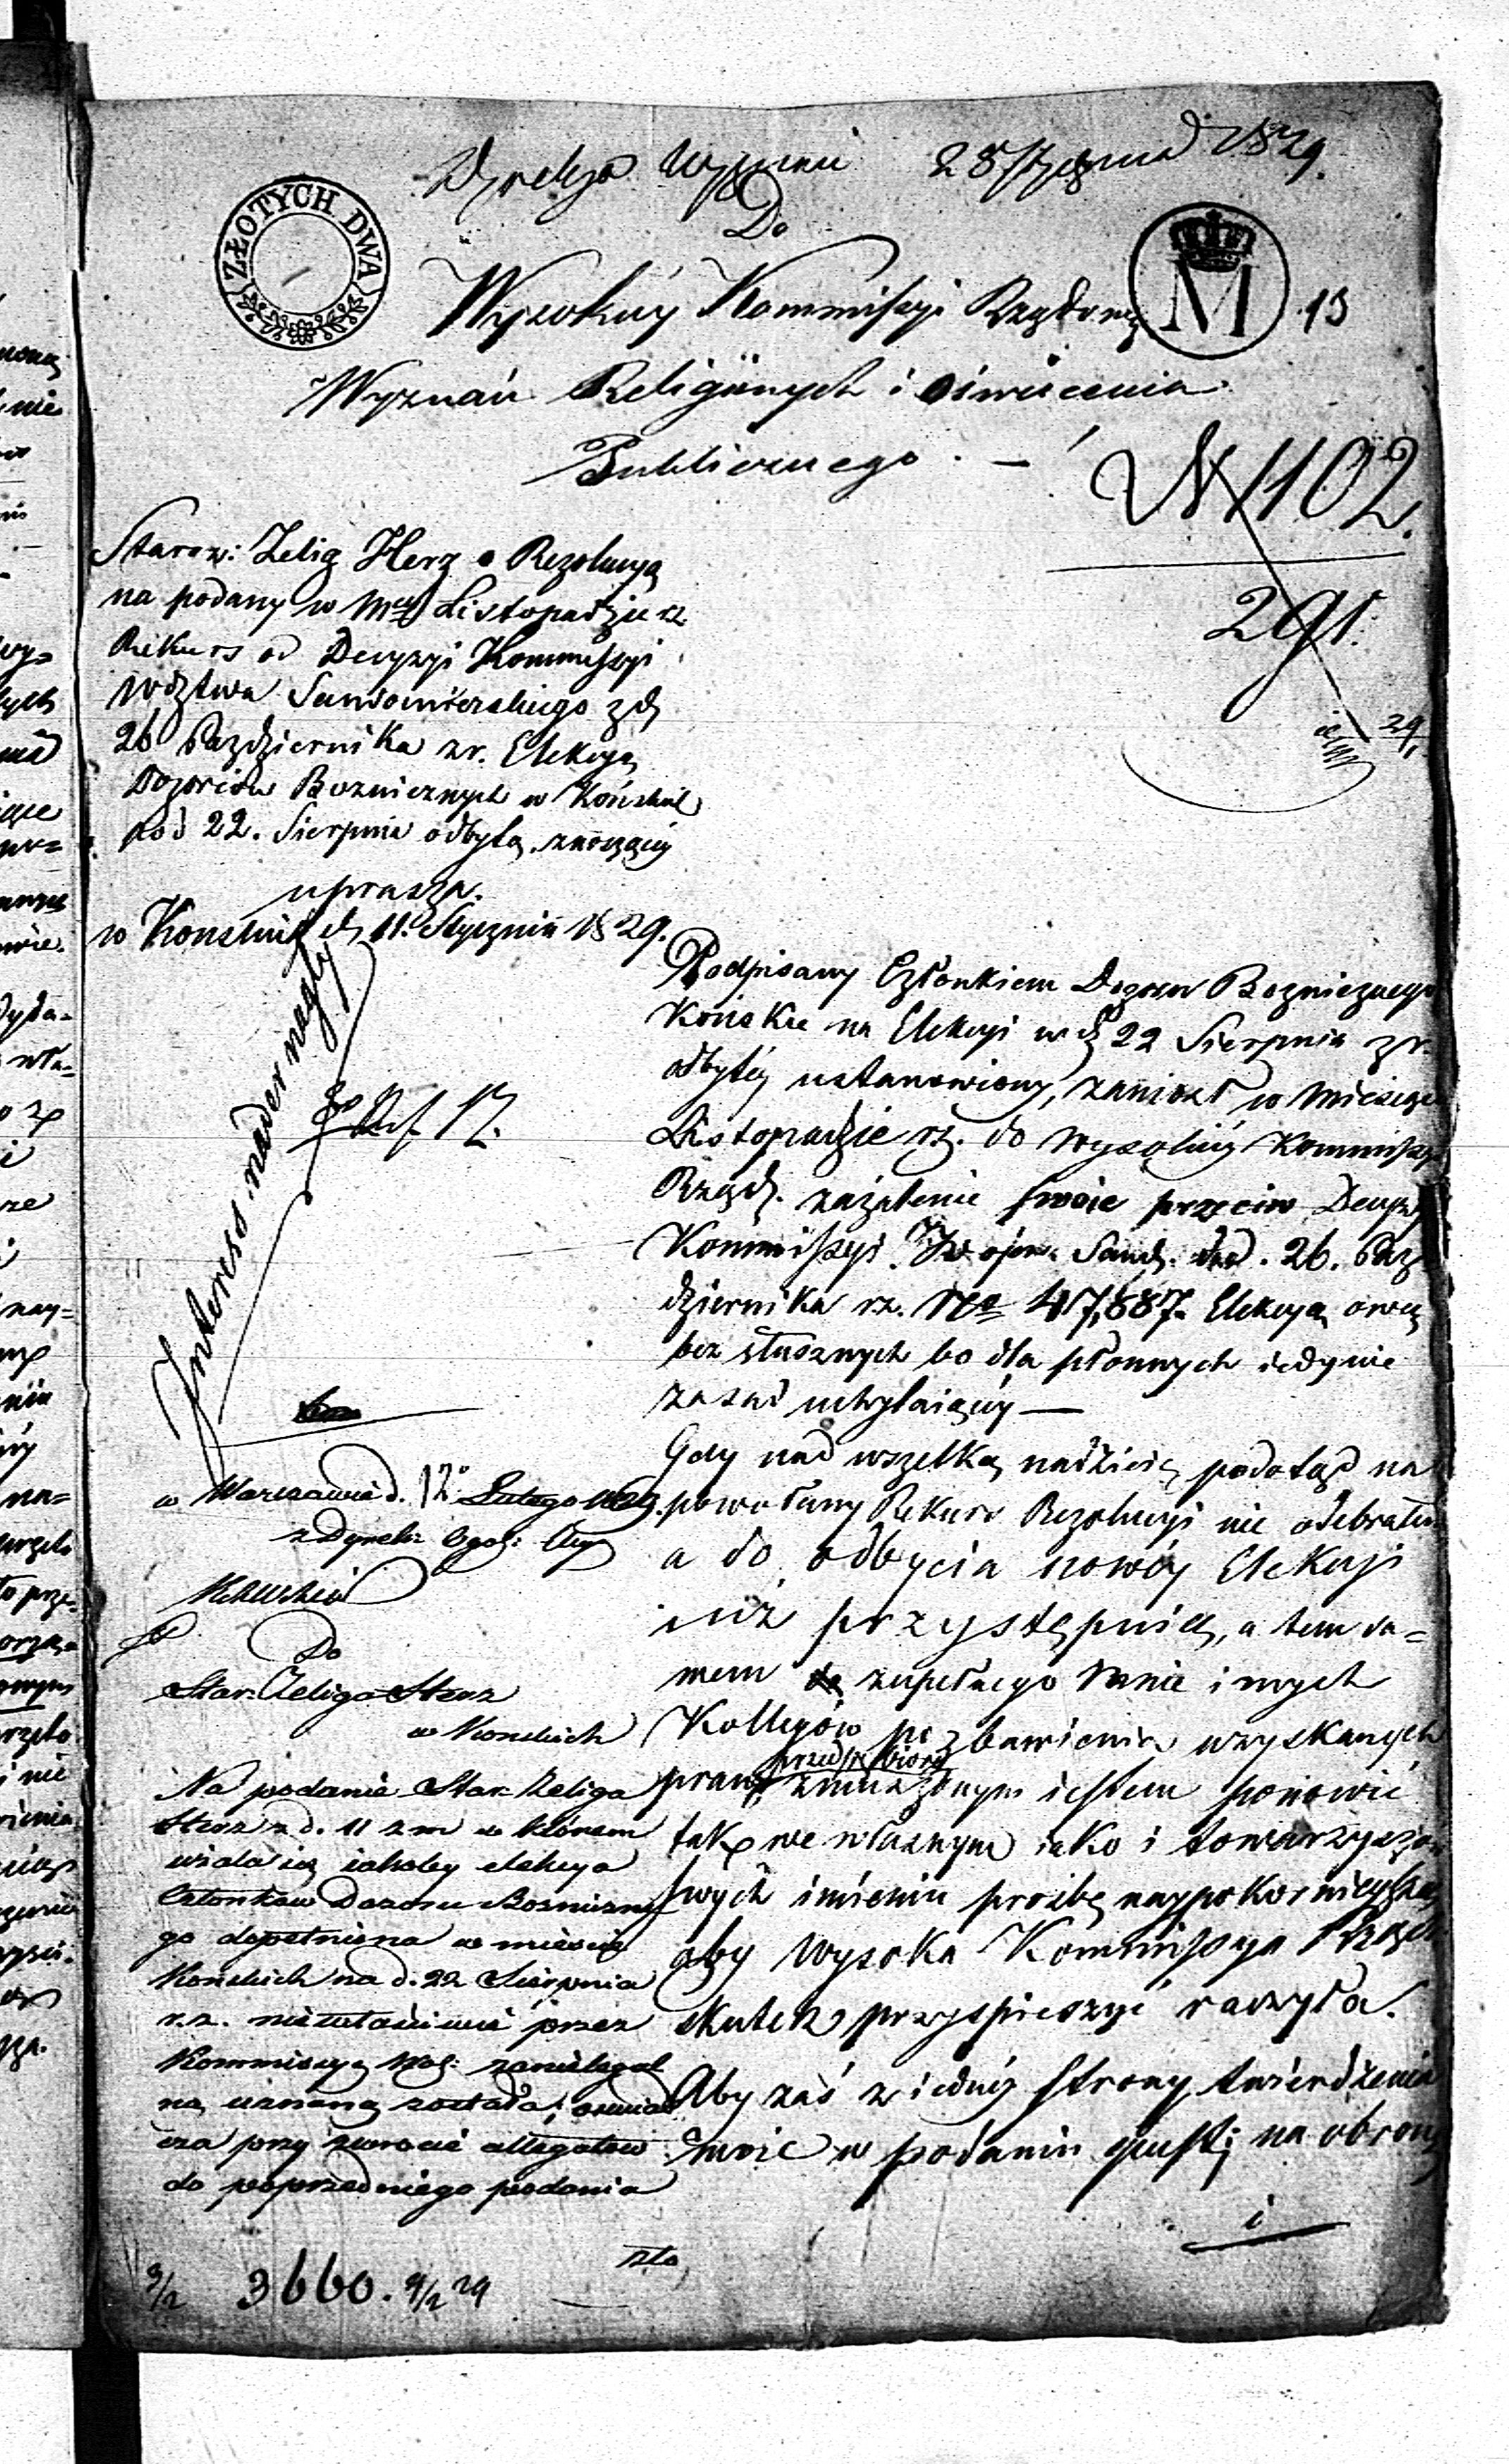 Dyrekcja Wyznań 28 Stycznia 1829.
ZŁOTYCH DWA
Do
Wysokiéy Kommissyi Rządowéy
M
13
Wyznań Religiinych i Oświecenia
Publicznego. —
N 1102.
29/1
Staroz: Zelig Herz o Rezolucyą
na podany w Mcu Listopadzie rz
Rekurs od Decyzyi Kommissyi
Wdztwa Sandomierskiego z d
26 Października zr. Elekcyą
Dozorców Bozniczych w Końskich
pod 22. Sierpnia odbytą. znoszącéy
uprasza.
w Konskich d 11. Stycznia 1829.
Interess nader nagły
Podpisany Członkiem Dozoru Bozniczego
Końskie na Elekcyi w d 22 Sierpnia zr.
odbytéy ustanowiony, zaniosł w Miesiącu
Listopadzie rz. do Wysokiéy Kommissyi
Rządz. zażalenie swoie przeciw Decyzyi
Kommissyi Wojew. Sand. 26. Paz
dziernika rz. No 47,887. Elekcyą ową
bez słusznych bo dla płonnych iedynie
zasad uchylaiącéy —
Gdy nad wszelką nadzieię podotąd na
powołany Rekurs Rezolucyi nie odebrałem
a do odbycia nowéy Elekcyi
iuż przystąpiść, a tem sa=
mem zupełnego Mnie i mych
Kollegów pozbawienia uzyskanych
praw przedsiębiorą zmuszonym iestem ponowić
tak we własnym iako i towarzyszów
swych imieniu prożbę naypokornieyszą
aby Wysoka Kommissya Rząd
skutek przyspieszyć raczyła.
Aby zaś z iednéy strony twierdzenia
moie w podaniu na obronę
i
w Warszawie d. 12 Lutego 1829.
z Dyrek: Ogol: Wy
Do
Star. Zeliga Herz
w Konskich
Na podanie Star. Zeliga
Herz z d. 11 z m w ktorem
wiada się iakoby elekcya
Członkow Dozoru Boznicze
go dopełniona w mieście
Konskich na d. 22 Sierpnia
r. z. niewłaściwie przez
Kommissyą Woj: za nielegal
ną uznaną została, oswiad
cza przy zwrocie allegatow
do poprzedniego podania
zło
9/2 3660. 9/2 29